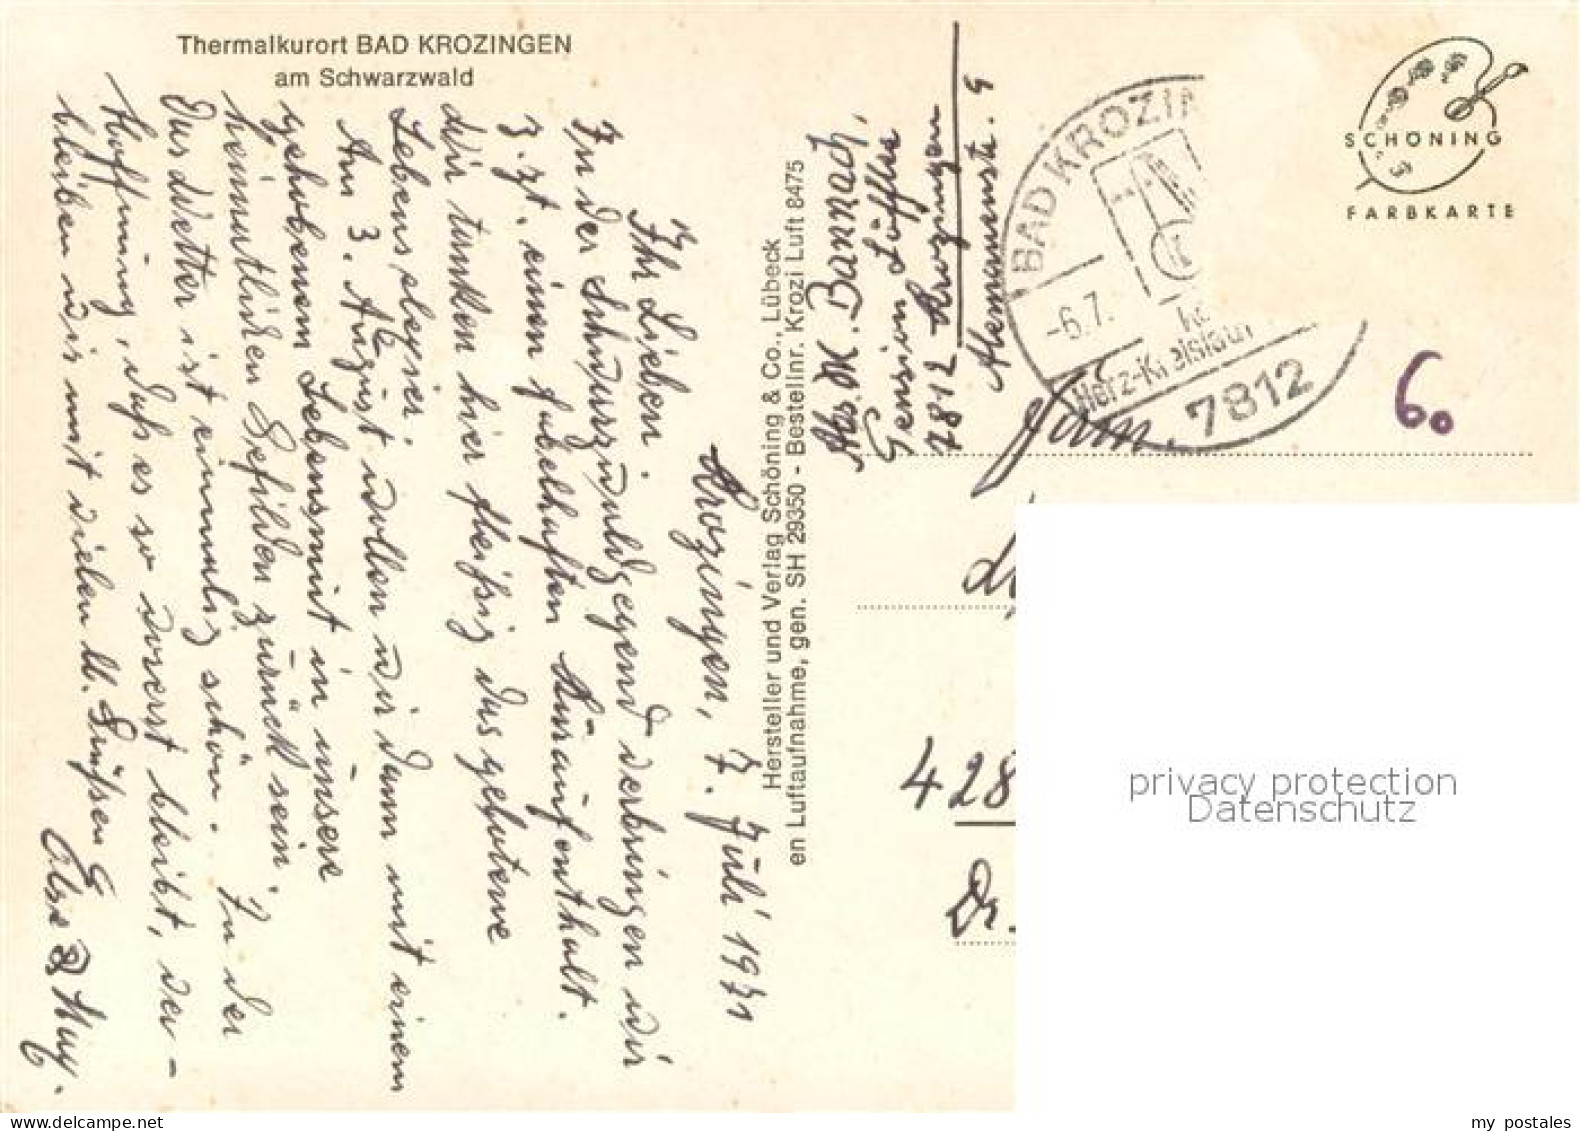 Thermalkurort BAD KROZINGEN
am Schwarzwald
Krozingen, 7. Juli 1971
Ihr Lieben.
In der Schwarzwaldgegend verbringen wir
z.Zt. einen fabelhaften Kuraufenthalt.
Wir tanken hier fleißig das gebotene
Lebenselexier.
Am 3. August wollen wir dann mit einem
gehobenem Lebensmut in unsere
heimatlichen Gefilden zurück sein.
Das Wetter ist einmalig schön. In der
Hoffnung, daß es so vorerst bleibt, ver-
bleiben wir mit vielen Grüßen
Else
Hersteller und Verlag Schöning & Co., Lübeck
en Luftaufnahme, gen. SH 29350 - Bestellnr. Krozi Luft 8475
Abs. M. Bannach,
Pension Löffler
7812 Krozingen
BAD KROZIN
-6.7.
Herz-Kreislauf
7812
SCHÖNING
FARBKARTE
60
Fam.
428
Dr.
privacy protection
Datenschutz
my postales